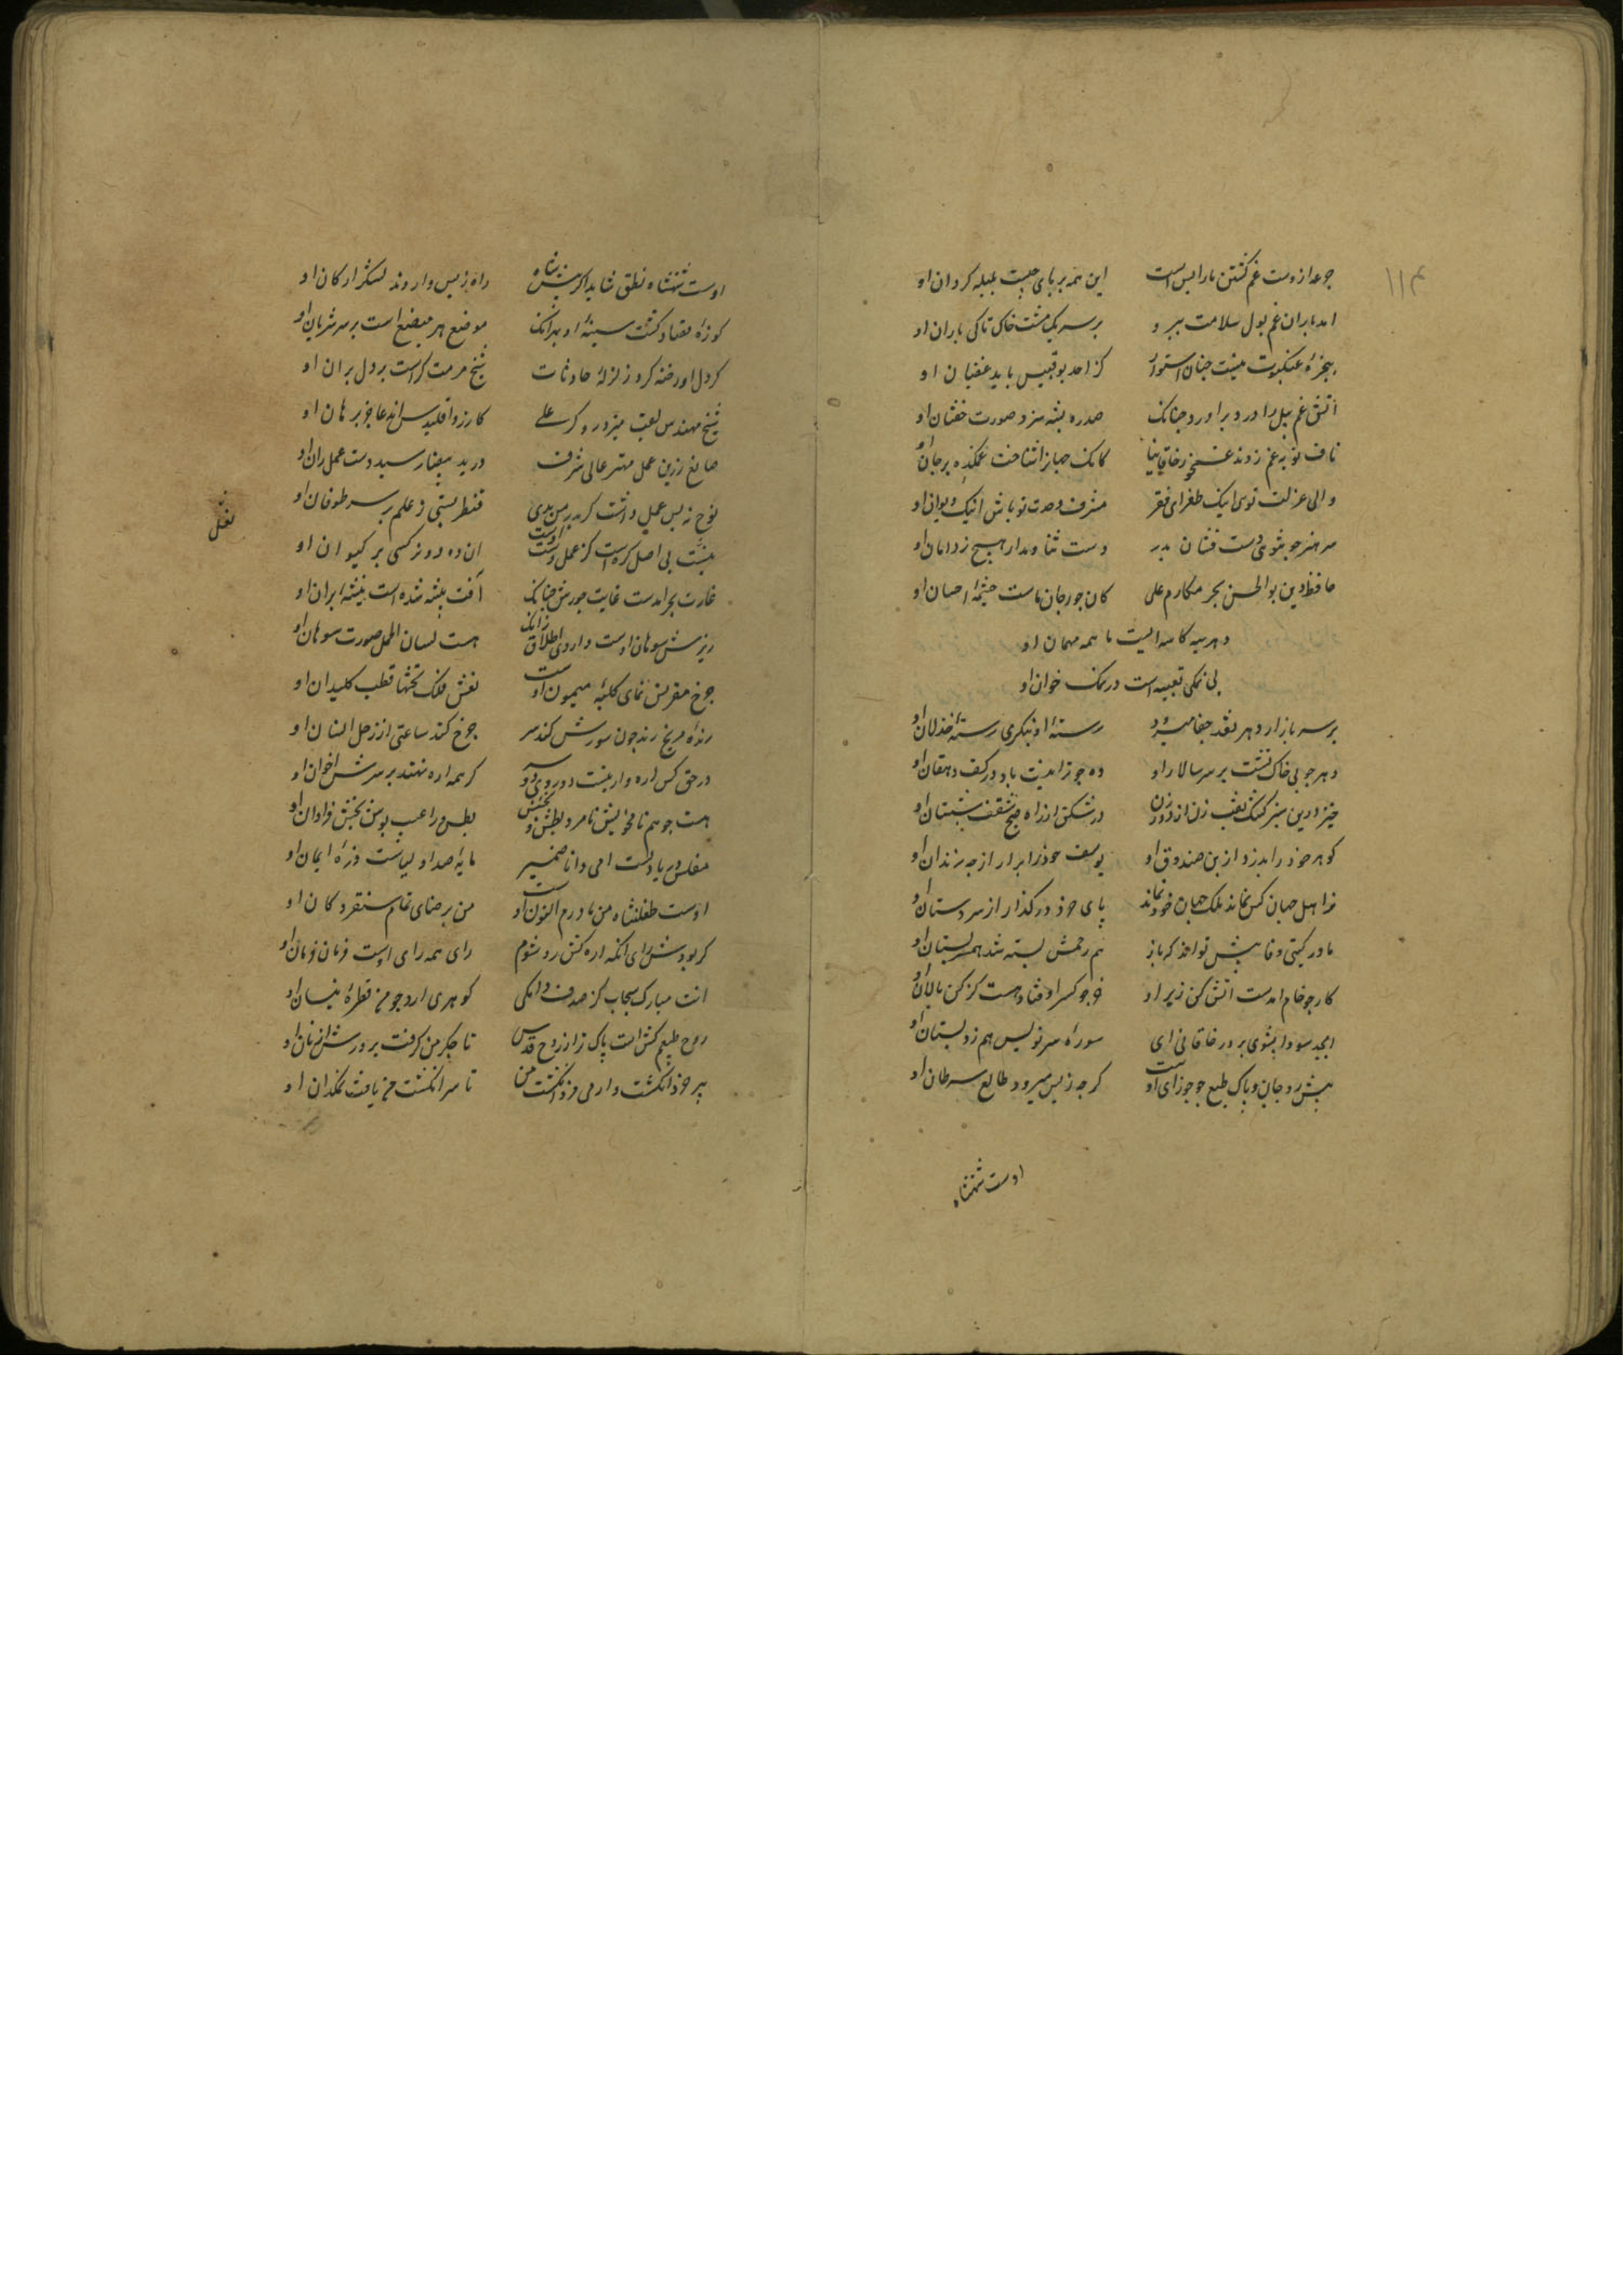 ۱۱۴
جرعه از دست غم کشتن ما را بس است این همه بر پای چیست بلبله گردان او
امد باران غم پول سلامت ببرد بر سر یک مشت خاک تا کی باران او
پنجره عنکبوت نیست چنان استوار کز احد بوقبیس باید غضبان او
آتش غم پیل را دود برآورد چنانک صدره پشه سزد صورت خفتان او
ناف تو بر غم زدند غم خور خاقانیا کانک جهان را شناخت غمکده بر جان او
والی عزلت توی اینک طغرای فقر مشرف وحدت تو باش اینک دیوان او
سر هنر جو بشوی دست فشان بد دست ثنا ومدار هیچ ز دامان او
حافظ دین بوالحسن بحر مکارم علی کان چو رجان ماست چشمه احسان او
دهر سیه کاسه ایست ما همه مهمان او
بی نمکی تعبیه است در نمک خوان او
بر سر بازار دهر نقد جفا میرود رسته او بنگری رسته خذلان او
دهر چو بی خاک نشست بر سر سالار او ده چو ز امنیت باد در کف دهقان او
خیز درین سبز کشک نقب زن از دود دل در شکن از راه صبح سقف شبستان او
گوهر خود را بدزد از بن صندوق او یوسف خود را برآر از چه زندان او
ز اهل جهان کس نماند بلک جهان خود نماند پای خود درگذار از سر دستان او
مادر گیتی وفا بیش نواخذ که باز هم رحمش بسته شد هم سر پستان او
کار چو خام امدست اتش کن زیر او خر چو کسر اوفتاد هست کز کن پالان او
ابجد سودا بشوی بر در خاقانی ای سوره سر نویس هم ز دبستان او
پیش رو جان و پاک طبع چو جوزای اوست گرچه زپس میرود طالع سرطان او
اوست شهنشاه
اوست شهنشاه نطق شاید اگر پیش شاه راه زپس وا روند لشکر ارکان او
کوزه فصاد گشت سینه او بهر آنک موضع هر مبضع است بر سر شریان او
گر دل او رخنه کرد زلزله حادثات شیخ مرمت گر است بر دل بران او
شیخ مهندس لقب پیر دروگر علی کازر و اقلیدس اند عاجز برهان او
صانع زرین عمل مهتر عالی شرف در ید بیضا رسید دست عمل ران او
نوح نه بس علم داشت گر پدر من بدی قنطره بستی ز علم بر سر طوفان او
نیست بی اصل کرسی است کز عمل دست اوست ان ده دو نرگسی بر کیوان او
غارت بحر امدست غایت جودش چنانک آفت بیشه شده است تیشه بران او
ریزش سوهان اوست داروی اطلاق ز انک هست لسان الحمل صورت سوهان او
چرخ مقرنس نمای کلبه میمون اوست نعش فلک تختها قطب کلیدان او
رنده مریخ رند چون سورش کند سر چرخ کند ساعتی از زحل افسان او
در حق کس اره وار نیست دو روی و دو سر گر همه اره نهند بر سرش اخوان او
هست چو همنام خویش نامزد بطش و بخشش بطش ورا عیب پوش بخش فراوان او
مفلس دریا دلست امی دانا ضمیر مایه صد اولیاست ذره ایمان او
اوست طغلشاه من مادرم التون اوست من برضای تمام سنقر دکان او
گر بودش رای انکه اره کش رد شوم رای همه رای اوست فرمان فرمان او
انت مبارک سحاب کز صدف دامکی گوهری ارد چو من قطره نیسان او
روح طبیعی کش است پاک تر از روح قدس تا جگر من گرفت پرورش از نان او
پیر خذ انگشت وار می خرد انگشت من تا سر انگشت من یافت نمکدان او
نعل